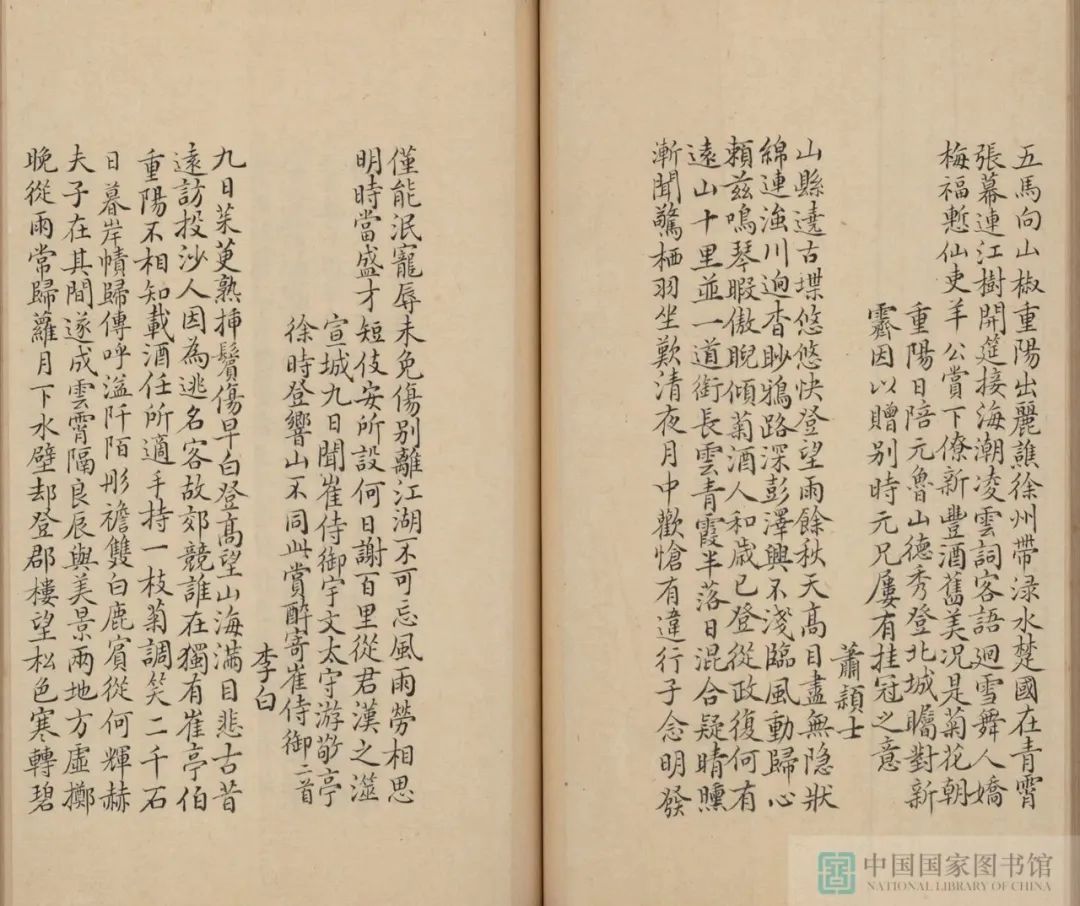 五馬向山椒重陽出麗譙徐州帶渌水楚國在青霄
張幕連江樹開筵接海潮凌雲詞客語廻雪舞人嬌
梅福慙仙吏羊公賞下僚新豐酒舊美况是菊花朝
重陽日陪元魯山德秀登北城矚對新
霽因以贈别時元兄屢有挂冠之意
蕭頴士
山縣遶古堞悠悠快登望雨餘秋天高目盡無隐狀
綿連滍川逈杳眇鴉路深彭澤興不淺臨風動歸心
頼兹鳴琴暇傲睨傾菊酒人和歳已登從政復何有
遠山十里並一道銜長雲青霞半落日混合疑晴曛
漸聞驚栖羽坐歎清夜月中歡愴有違行子念明發
僅能泯寵辱未免傷别離江湖不可忘風雨勞相思
明時當盛才短伎安所設何日謝百里從君漢之澨
宣城九日聞崔侍御宇文太守游敬亭
徐時登響山不同此賞醉寄崔侍御二首
李白
九日茱萸熟揷鬢傷早白登高望山海滿目悲古昔
遠訪投沙人因為逃名客故郊競誰在獨有崔亭伯
重陽不相知載酒任所適手持一枝菊調笑二千石
日暮岸幘歸傳呼溢阡陌彤襜雙白鹿賓從何輝赫
夫子在其間遂成雲霄隔良辰與美景兩地方虛擲
晚從雨常歸蘿月下水壁却登郡樓望松色寒轉碧
中国国家图书馆
NATIONAL LIBRARY OF CHINA